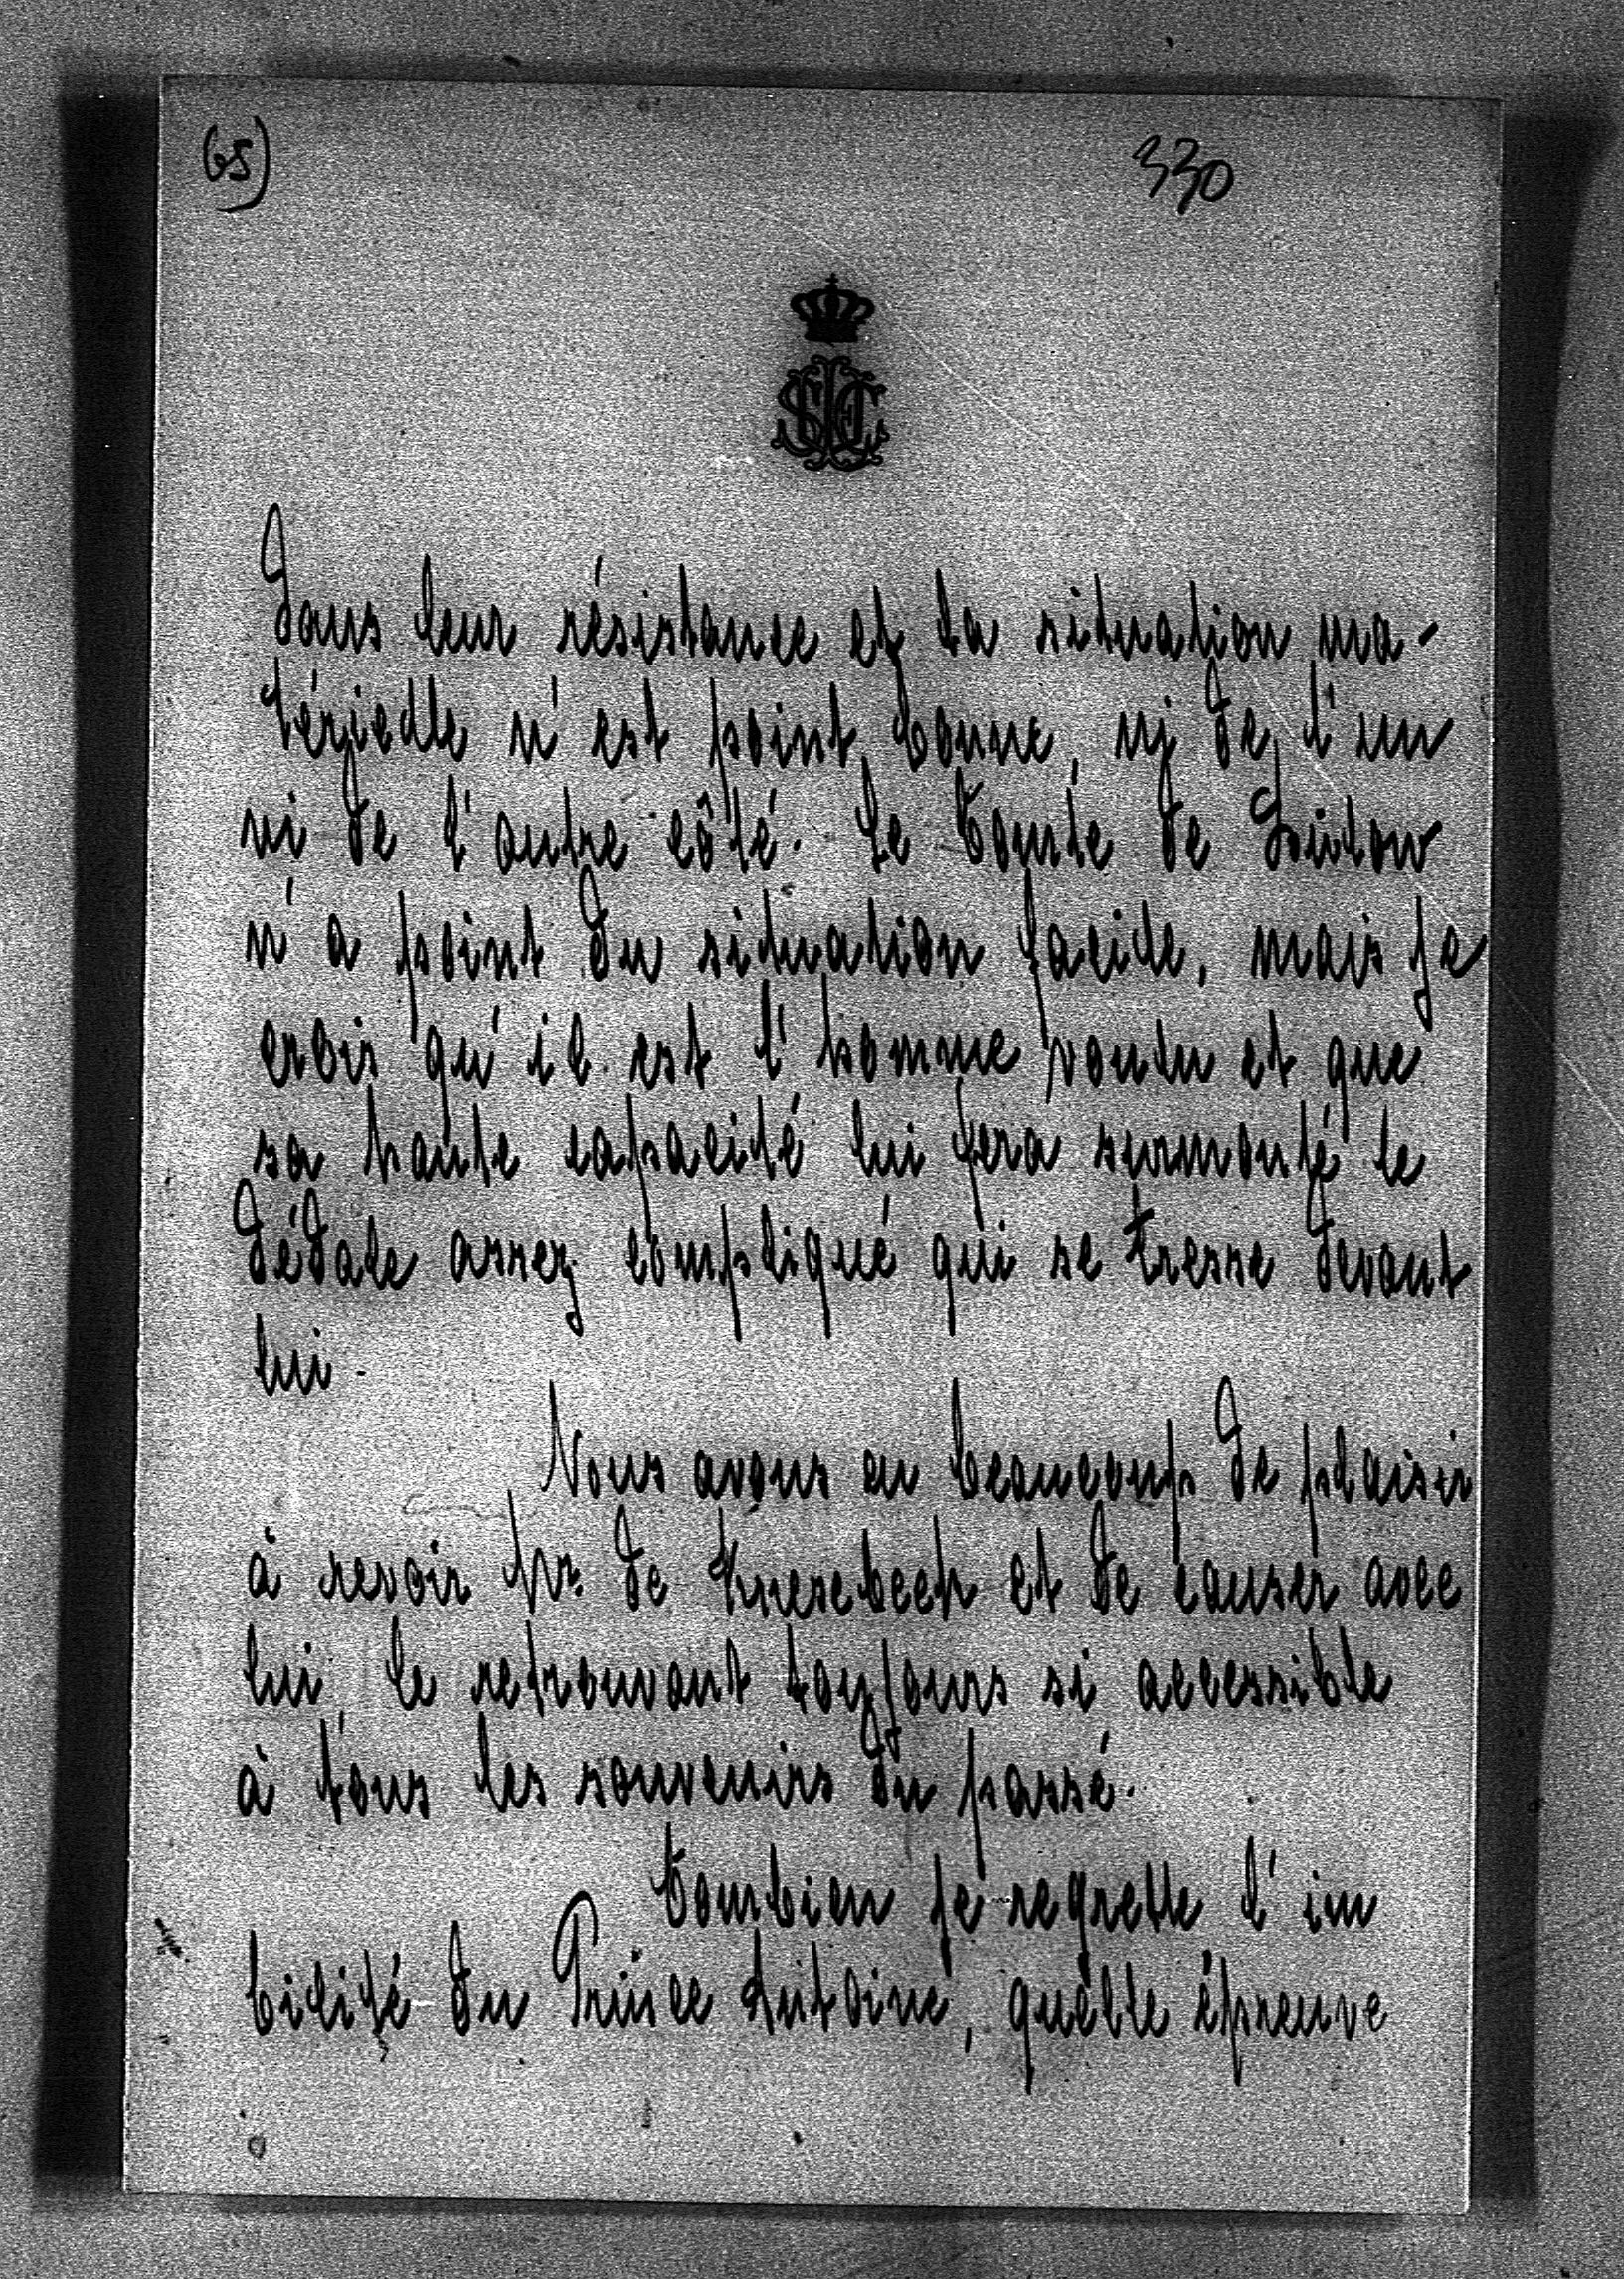 (65) 330
dans leur résistance et la situation ma-
térielle n'est point bonne, ni de l'un
ni de l'autre côté. Le Comte de
n'a point du situation facile, mais je
crois qu'il est l'homme voulu et que
sa haute capacité lui fera surmonté le
dédale assez compliqué qui se tresse devant
lui.
Nous avons eu beaucoup de plaisir
à revoir Mr. de Knesebeck et de causer avec
lui, le retrouvant toujours si accessible
à tous les souvenirs du passé.
Combien je regrette l'im
bilité du Prince Antoine, quelle épreuve